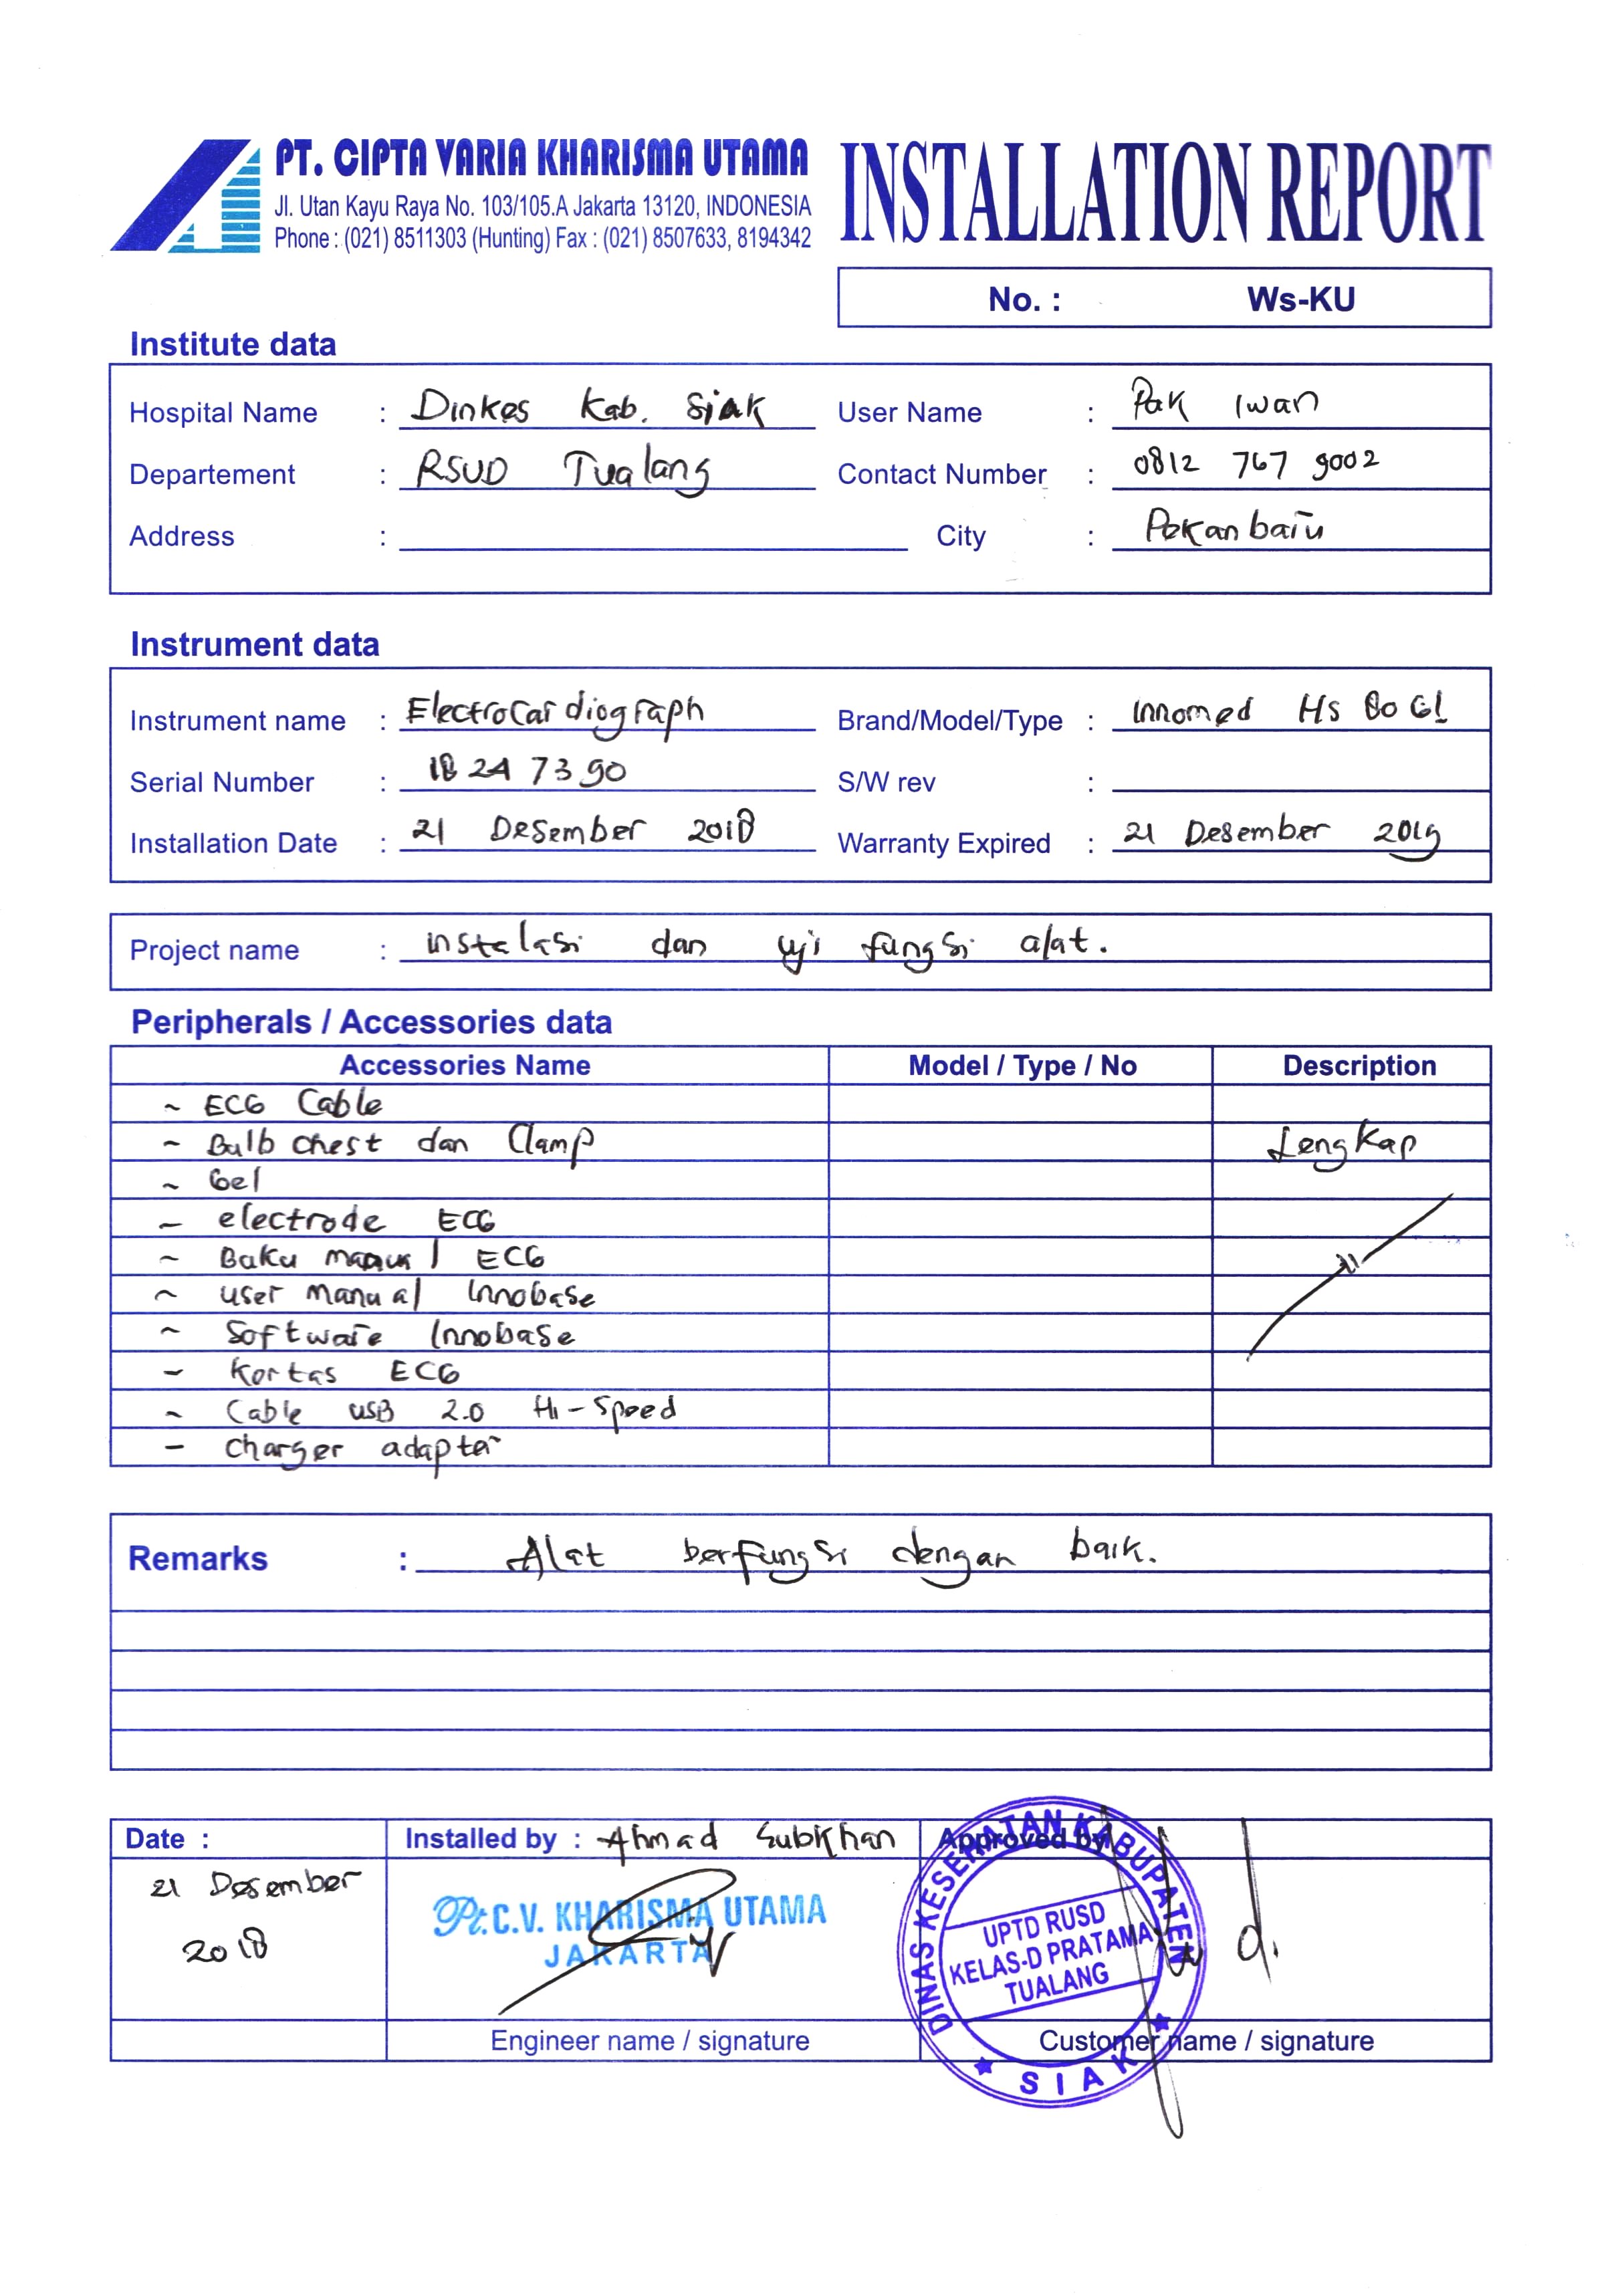 PT. CIPTA VARIA KHARISMA UTAMA
Jl. Utan Kayu Raya No. 103/105.A Jakarta 13120, INDONESIA
Phone : (021) 8511303 (Hunting) Fax : (021) 8507633, 8194342
INSTALLATION REPORT
No. : Ws-KU
Institute data
Hospital Name : Dinkes Kab. Siak User Name : Pak Iwan
Departement : RSUD Tualang Contact Number : 0812 767 9002
Address : City : Pekanbaru
Instrument data
Instrument name : Electrocardiograph Brand/Model/Type : Innomed HS 80 G1
Serial Number : 18 24 73 90 S/W rev :
Installation Date : 21 Desember 2018 Warranty Expired : 21 Desember 2019
Project name : instalasi dan uji fungsi alat.
Peripherals / Accessories data
Accessories Name Model / Type / No Description
~ ECG Cable
~ Bulb chest dan Clamp Lengkap
~ Gel
~ electrode ECG
~ Buku manual ECG
~ user manual Innobase
~ Software Innobase
- Kertas ECG
~ Cable USB 2.0 Hi-Speed
- charger adapter
Remarks : Alat berfungsi dengan baik.
Date : Installed by : Ahmad Subkhan Approved by
21 Desember
2018
Pt. C.V. KHARISMA UTAMA
JAKARTA
DINAS KESEHATAN KABUPATEN
UPTD RUSD
KELAS-D PRATAMA
TUALANG
SIAK
Engineer name / signature Customer name / signature